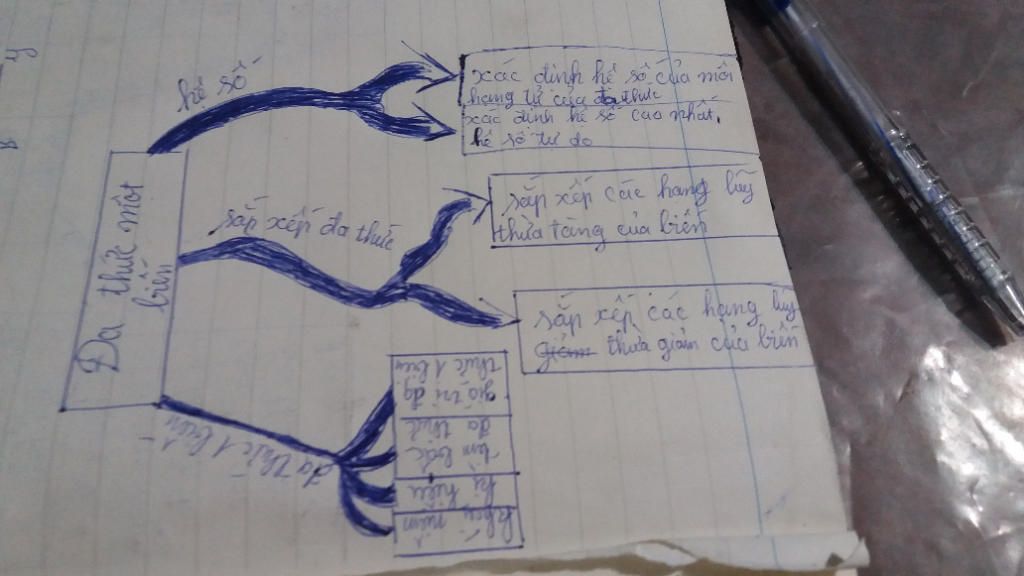 Đa thức một
biến
hê số
xác định hê số của mỗi
hạng tử của đa thức
xác định hê số cao nhất,
hê số tự do
sắp xếp đa thức
sắp xếp các hạng lũy
thừa tăng của biến
sắp xếp các hạng lũy
giảm thừa giảm của biến
đa thức 1 biến
giá trị đa
thức 1 biến
tìm bậc
đa thức
kí hiệu
khái niệm